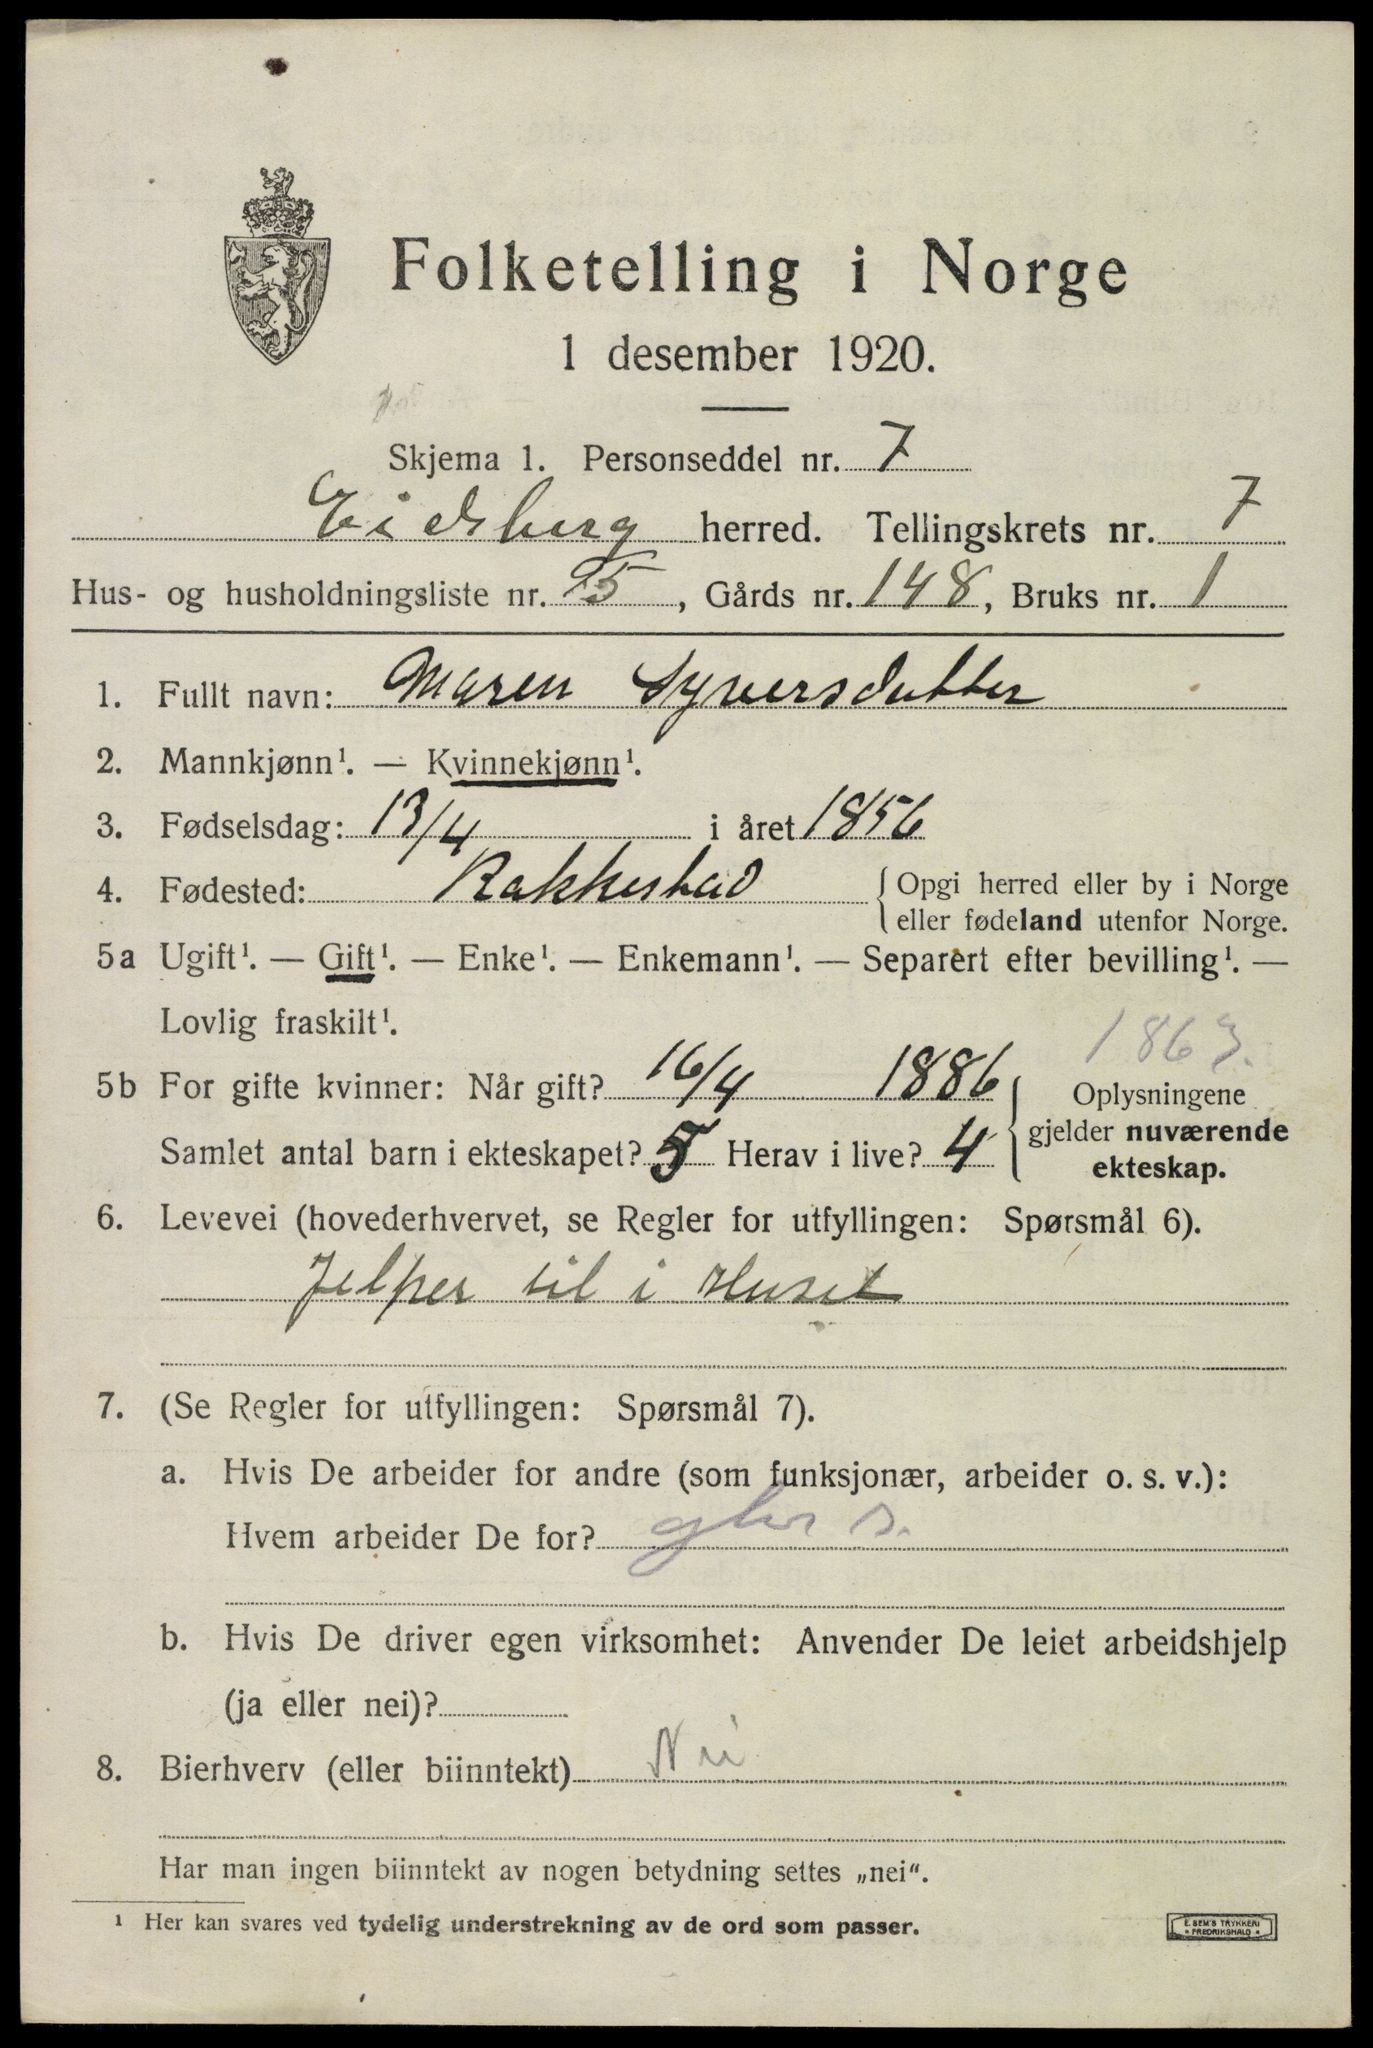 Folketelling i Norge
1 desember 1920.
Skjema 1. Personseddel nr. 7
Eidsberg herred. Tellingskrets nr. 7
Hus- og husholdningsliste nr. 25, Gårds nr. 148, Bruks nr. 1
1. Fullt navn: Maren Syversdatter
2. Mannkjønn¹. — Kvinnekjønn¹.
3. Fødselsdag: 13/4 i året 1856
4. Fødested: Rakkestad {Opgi herred eller by i Norge
eller fødeland utenfor Norge.
5a Ugift¹. — Gift¹. — Enke¹. — Enkemann¹. — Separert efter bevilling¹. —
Lovlig fraskilt¹.
1863.
5b For gifte kvinner: Når gift? 16/4 1886
Samlet antal barn i ekteskapet? 5 Herav i live? 4
Oplysningene
gjelder nuværende
ekteskap.
6. Levevei (hovederhvervet, se Regler for utfyllingen: Spørsmål 6).
Jelper til i Huset
7. (Se Regler for utfyllingen: Spørsmål 7).
a. Hvis De arbeider for andre (som funksjonær, arbeider o. s. v.):
Hvem arbeider De for?
b. Hvis De driver egen virksomhet: Anvender De leiet arbeidshjelp
(ja eller nei)?
8. Bierhverv (eller biinntekt) Nei
Har man ingen biinntekt av nogen betydning settes „nei“.
¹ Her kan svares ved tydelig understrekning av de ord som passer.
E. SEM'S TRYKKERI
FREDRIKSHALD